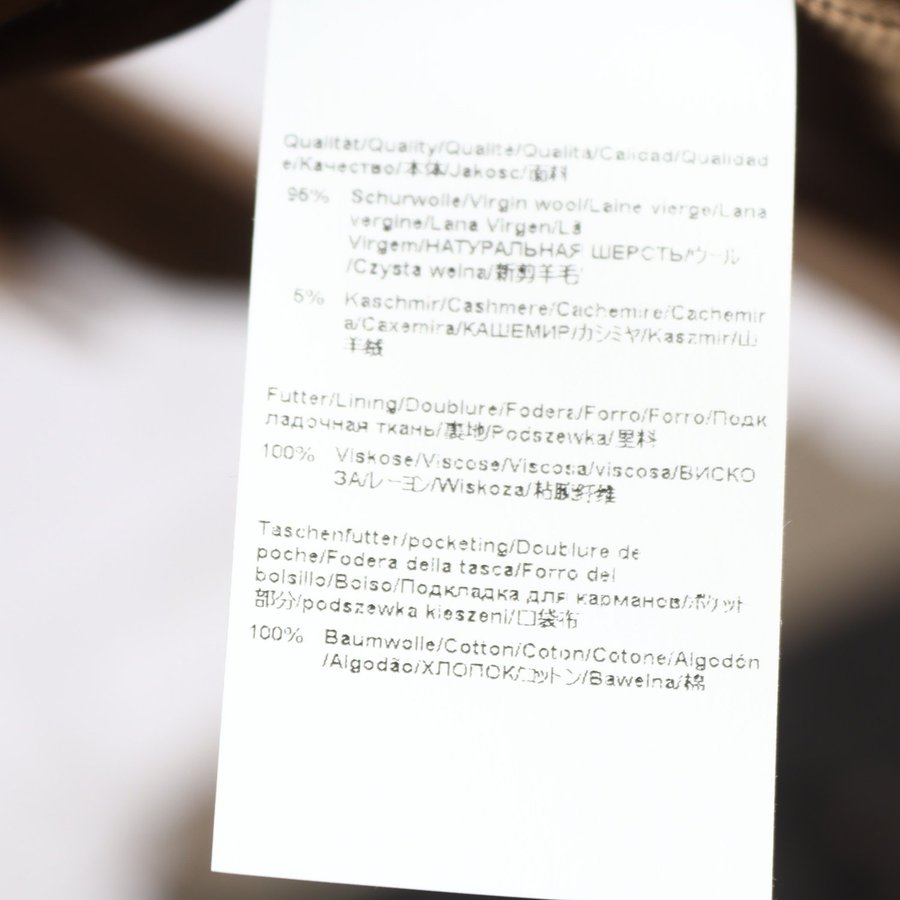 Qualität/Quality/Qualité/Qualità/Calidad/Qualidad
e/Качество/本体/Jakość/面料
95% Schurwolle/Virgin wool/Laine vierge/Lana
vergine/Lana Virgen/Lã
Virgem/НАТУРАЛЬНАЯ ШЕРСТЬ/ウール
/Czysta wełna/新剪羊毛
5% Kaschmir/Cashmere/Cachemire/Cachemir
a/Caxemira/КАШЕМИР/カシミヤ/Kaszmir/山
羊绒
Futter/Lining/Doublure/Fodera/Forro/Forro/Подк
ладочная ткань/裏地/Podszewka/里料
100% Viskose/Viscose/Viscosa/viscosa/ВИСКО
ЗА/レーヨン/Wiskoza/粘胶纤维
Taschenfutter/pocketing/Doublure de
poche/Fodera della tasca/Forro del
bolsillo/Bolso/Подкладка для карманов/ポケット
部分/podszewka kieszeni/口袋布
100% Baumwolle/Cotton/Coton/Cotone/Algodón
/Algodão/ХЛОПОК/コットン/Bawełna/棉